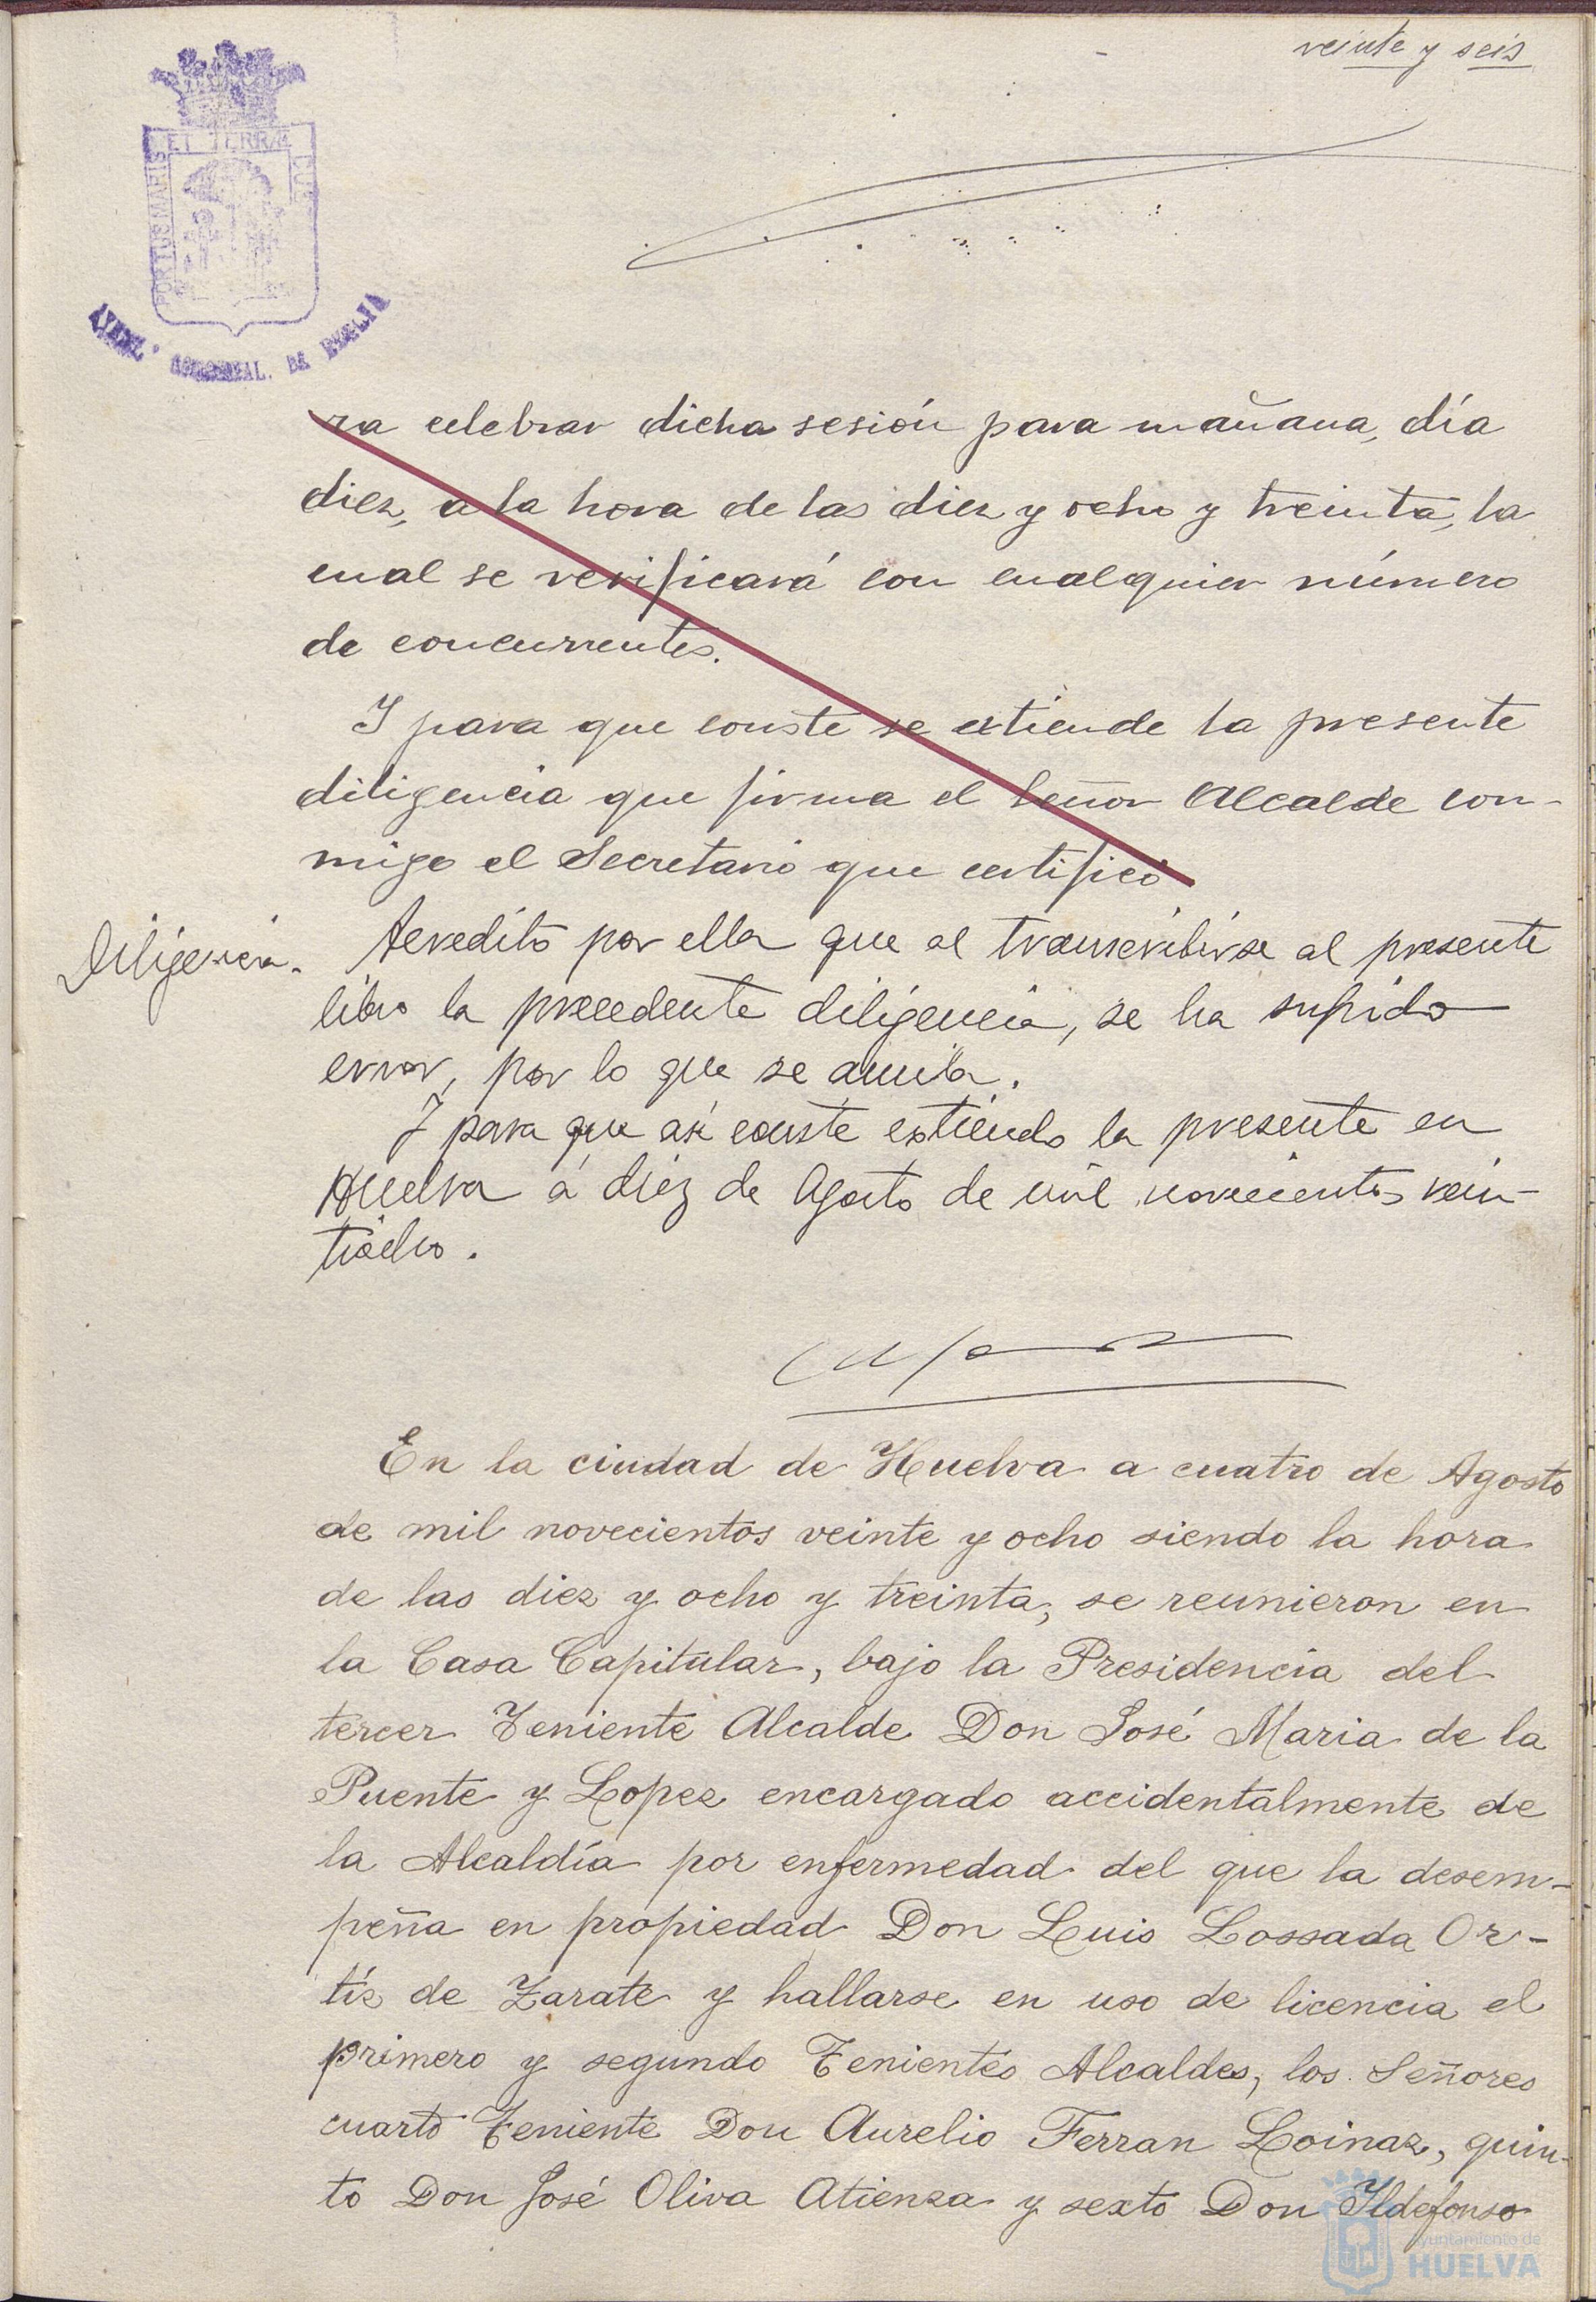 veinte y seis
PORTUS MARIS ET TERRÆ CUS
AYUNT. DE HUELVA
ra celebrar dicha sesión para mañana, día
diez, a la hora de las diez y ocho y treinta, la
cual se verificará con cualquier número
de concurrentes.
Y para que conste se extiende la presente
diligencia que firma el Señor Alcalde con-
migo el Secretario que certifico
Diligencia.
Acredito por ella que al transcribirse al presente
libro la precedente diligencia, se ha sufrido
error, por lo que se anula.
Y para que así conste extiendo la presente en
Huelva á diez de Agosto de mil novecientos vein-
tiocho.
En la ciudad de Huelva a cuatro de Agosto
de mil novecientos veinte y ocho siendo la hora
de las diez y ocho y treinta, se reunieron en
la Casa Capitular, bajo la Presidencia del
tercer Teniente Alcalde Don José Maria de la
Puente y Lopez encargado accidentalmente de
la Alcaldía por enfermedad del que la desem-
peña en propiedad Don Luis Lossada Or-
tíz de Zarate y hallarse en uso de licencia el
primero y segundo Tenientes Alcaldes, los Señores
cuarto Teniente Don Aurelio Ferran Loinaz, quin-
to Don José Oliva Atienza y sexto Don Ildefonso
Ayuntamiento de
HUELVA